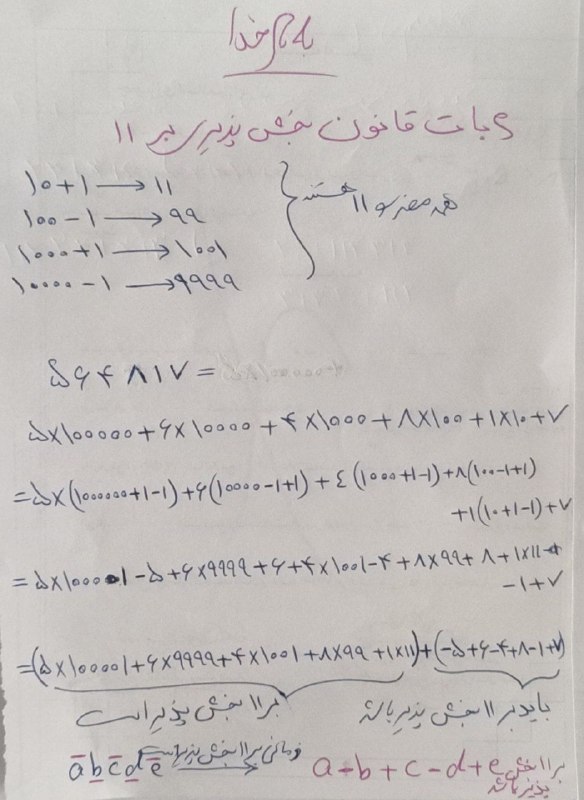 به نام خدا
اثبات قانون بخش پذیری بر ۱۱
۱۰+۱ → ۱۱
۱۰۰-۱ → ۹۹
۱۰۰۰+۱ → ۱۰۰۱
۱۰۰۰۰-۱ → ۹۹۹۹
همه مضرب ۱۱ هستند
۵۶۴۸۱۷=
۵×۱۰۰۰۰۰+۶×۱۰۰۰۰+۴×۱۰۰۰+۸×۱۰۰+۱×۱۰+۷
=۵×(۱۰۰۰۰۰۰+۱-۱)+۶(۱۰۰۰۰-۱+۱)+٤(۱۰۰۰+۱-۱)+۸(۱۰۰-۱+۱)
+۱(۱۰+۱-۱)+۷
=۵×۱۰۰۰۰۱-۵+۶×۹۹۹۹+۶+۴×۱۰۰۱-۴+۸×۹۹+۸+۱×۱۱
-۱+۷
=(۵×۱۰۰۰۰۱+۶×۹۹۹۹+۴×۱۰۰۱+۸×۹۹+۱×۱۱)+(-۵+۶-۴+۸-۱+۷)
بر ۱۱ بخش پذیر است
باید بر ۱۱ بخش پذیر باشد
a b c d e زمانی بر ۱۱ بخش پذیر است
a-b+c-d+e بر ۱۱ بخش
پذیر باشد